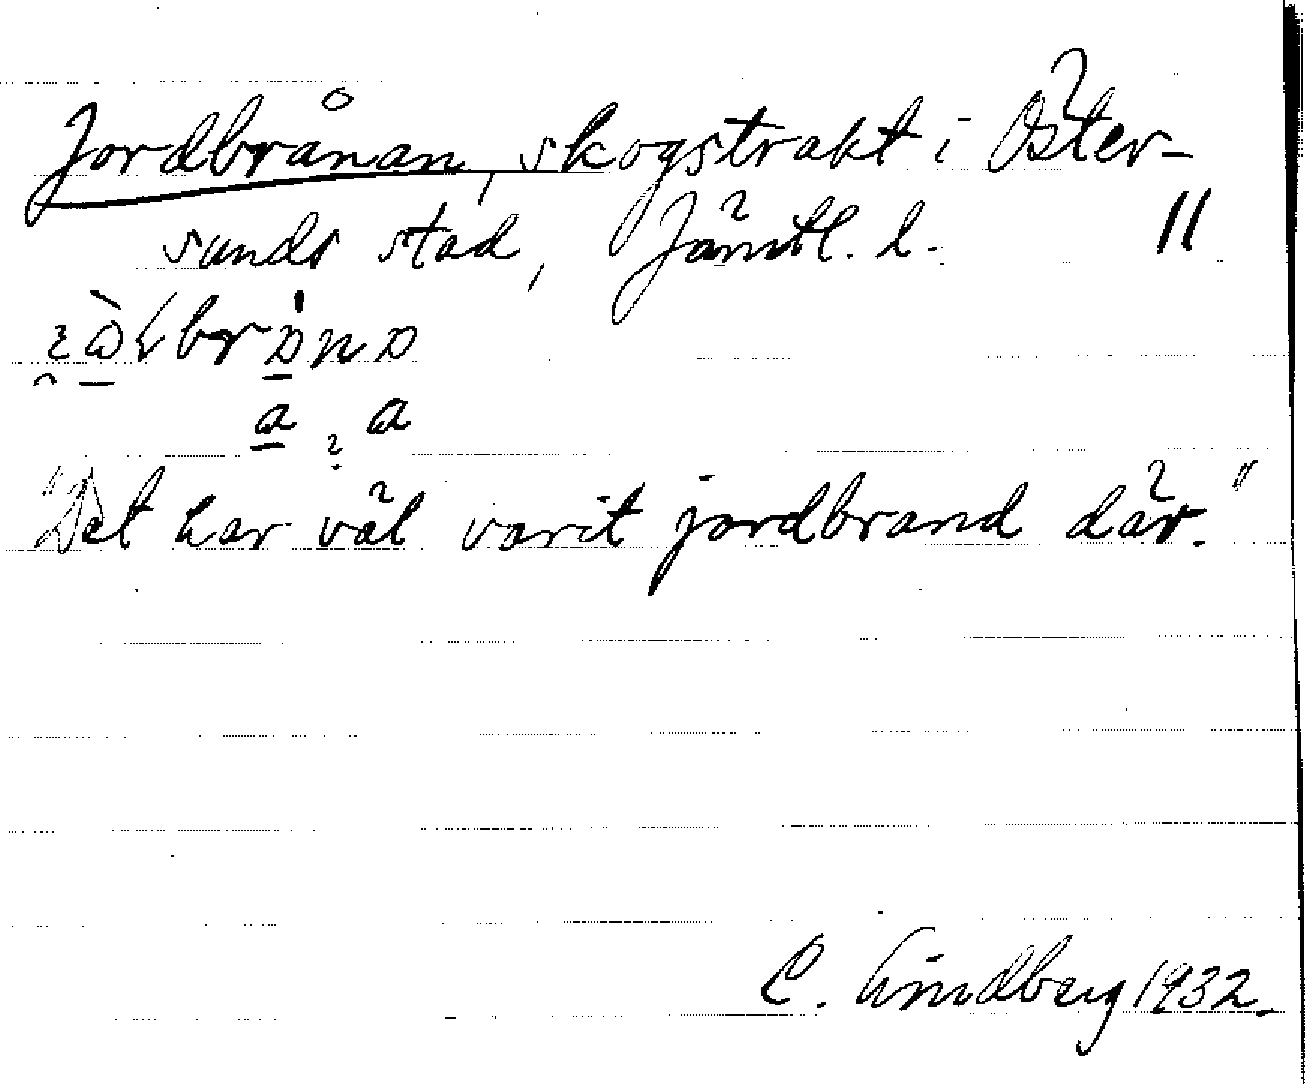 Jordbrånan, skogstrakt i Öster-
sunds stad, Jämtl. l. 11
a a
"Det har väl varit jordbrand där."
C. Lindberg 1932.